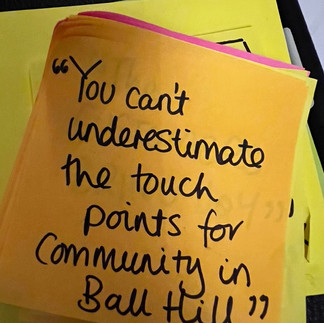 “You can't
underestimate
the touch
points for
Community in
Ball Hill”